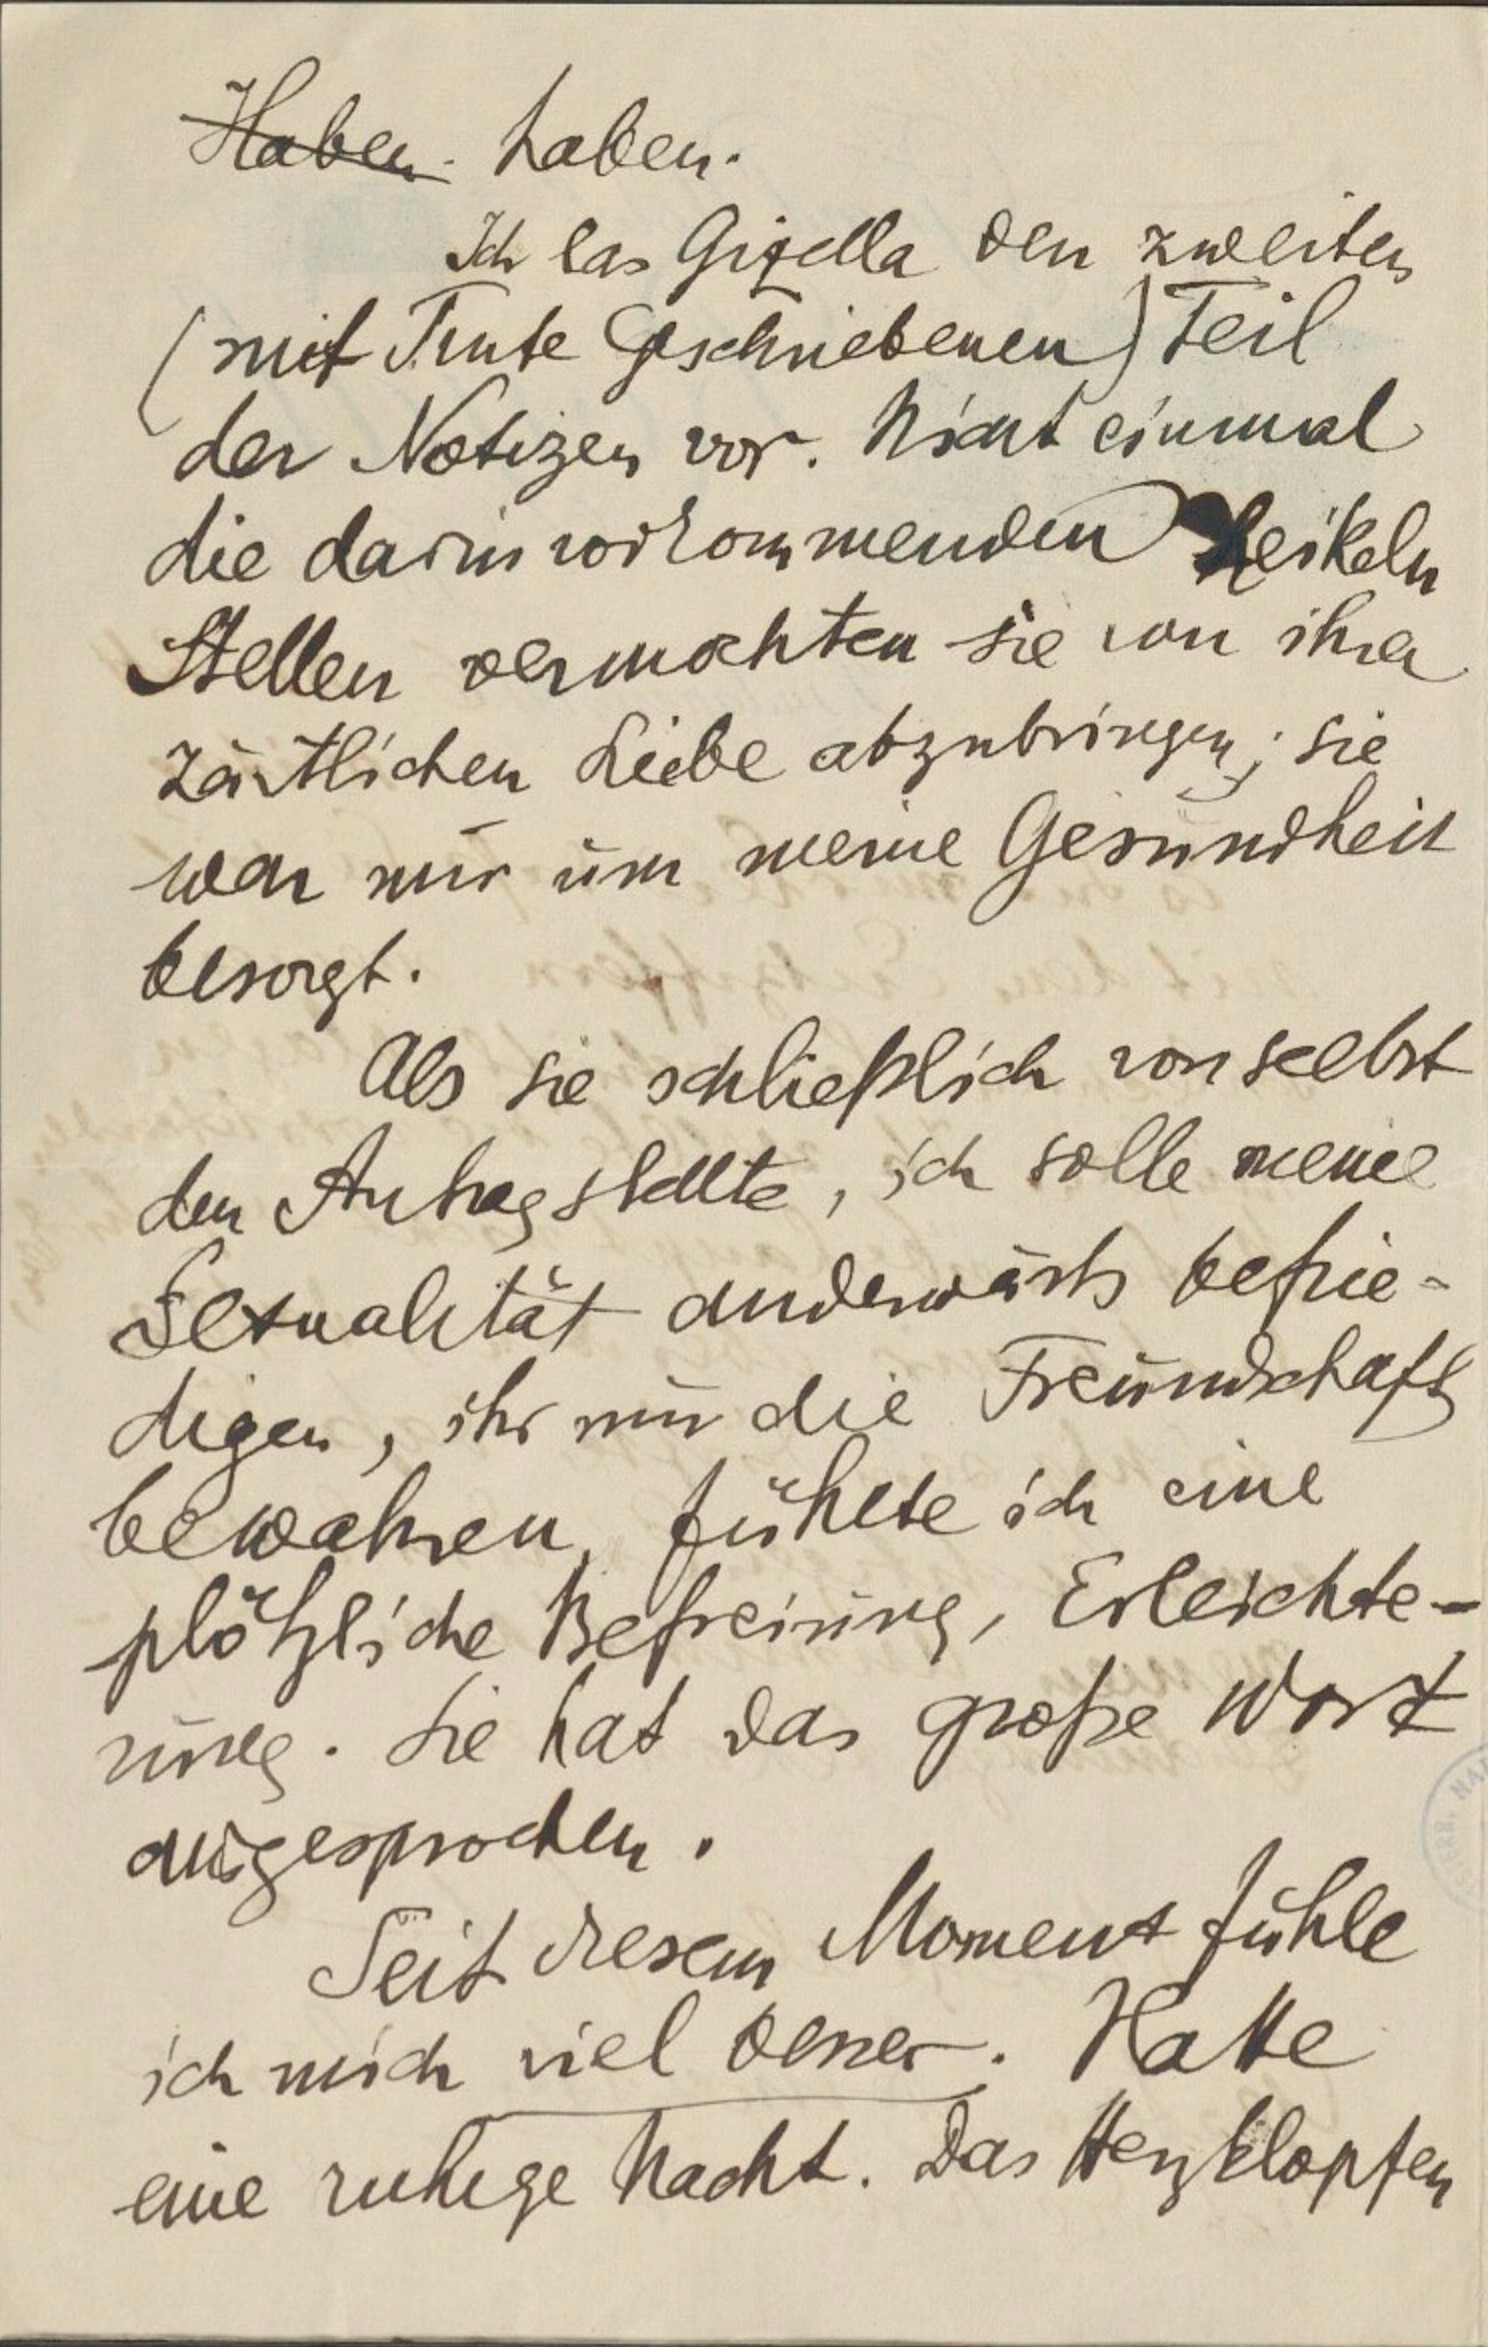 Haben haben.
Ich las Gizella den zweiten
(mit Tinte Geschriebenen) Teil
der Notizen vor. Nicht einmal
die darin vorkommenden heikeln
Stellen vermochten sie von ihrer
zärtlichen Liebe abzubringen; sie
war nur um meine Gesundheit
besorgt.
Als sie schließlich von selbst
den Antrag stellte, ich solle meine
Sexualität anderwärts befrie-
digen, ihr nur die Freundschaft
bewahren, fühlte ich eine
plötzliche Befreiung, Erleichte-
rung. Sie hat das große Wort
ausgesprochen.
Seit diesem Moment fühle
ich mich viel besser. Hatte
eine ruhige Nacht. Das Herzklopfen